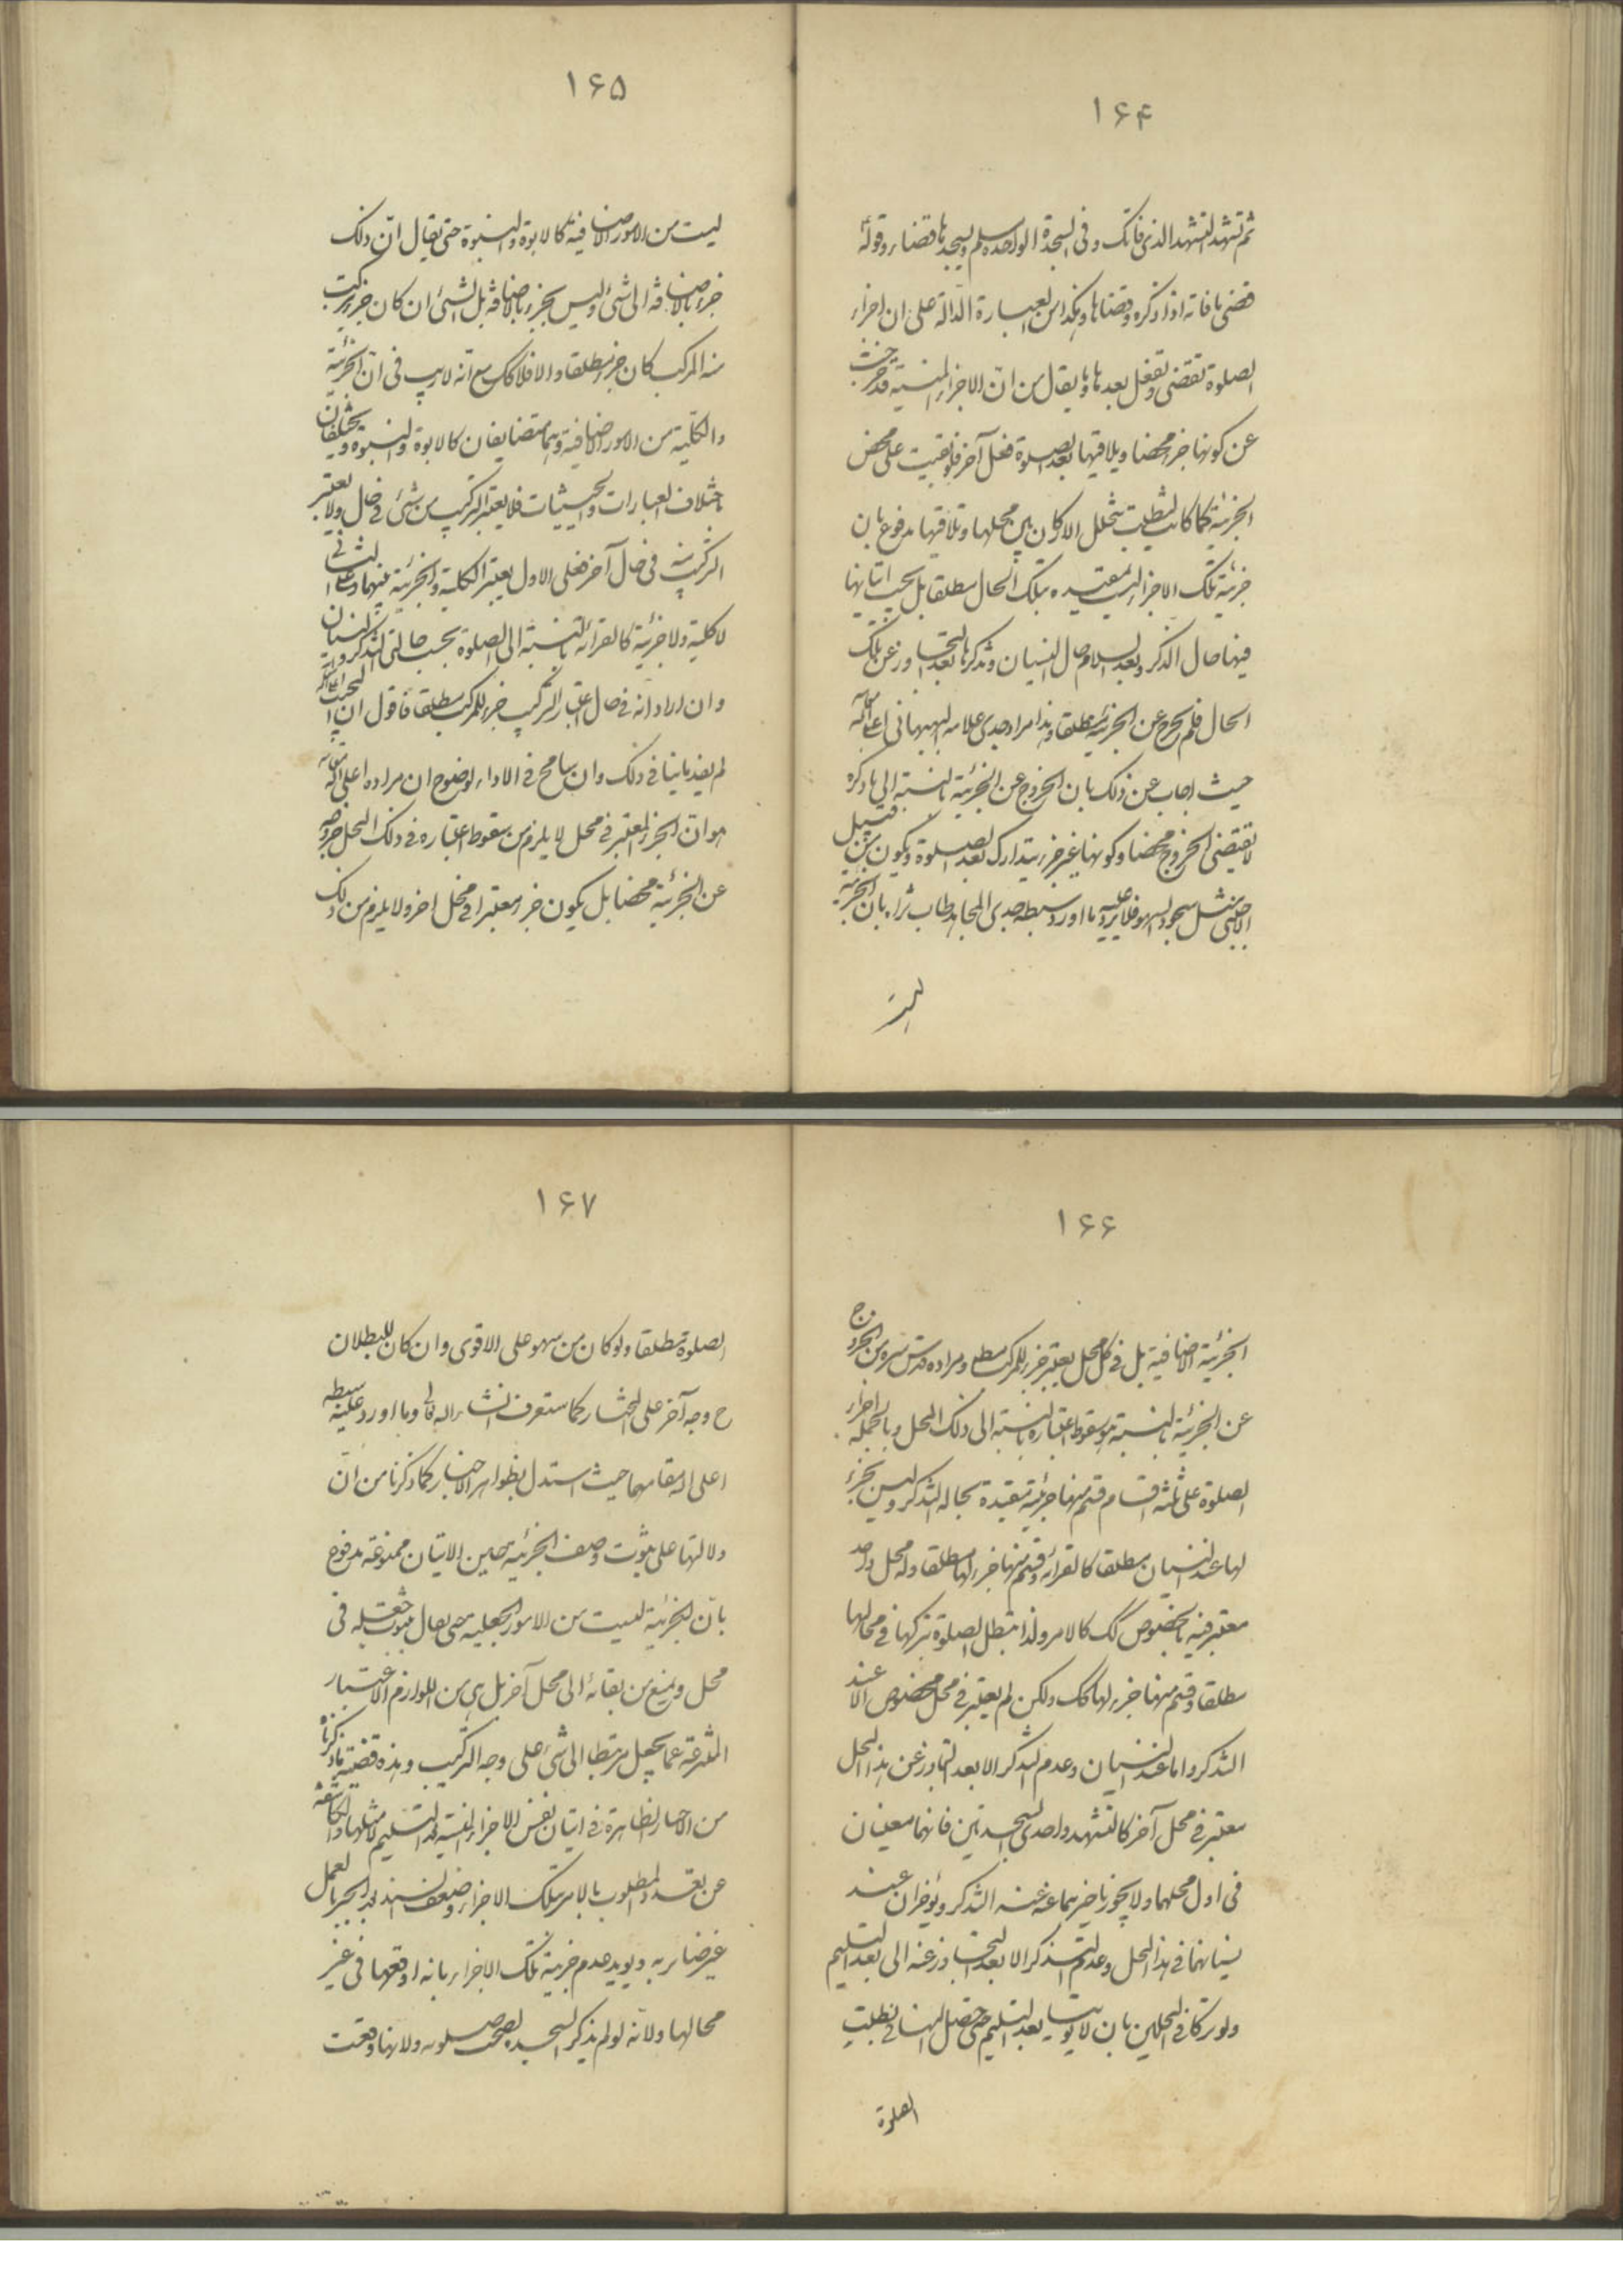 ١۶۴
ثم تشهد التشهد الذى فاتك و فى السجدة الواحدة يسلم ويسجدها قضاء وقوله
قضى ما فاته اذا ذكره وقضاها وهكذا من العبارة الدالة على ان اجزاء
الصلوة تقضى وتفعل بعدها وما يقال من انّ الاجزاء المنسية قد خرجت
عن كونها جزء محضا ويلاقيها بعد الصلوة فعل آخر فلو بقيت على محض
الجزئية كما كانت لبطلت بتخلل الاركان بين محلها وتلافيها مدفوع بان
جزئية تلك الاجزاء ليست مقيدة بتلك الحال مطلقا بل يجب اتيانها
فيها حال الذكر وبعد السلام حال النسيان وتذكرها بعد التجاوز عن تلك
الحال فلم يخرج عن الجزئية مطلقا وهذا مراد جدى علامة البهبهانى اعلى الله مقامه
حيث اجاب عن ذلك بان الخروج عن الجزئية بالنسبة الى ما ذكره
لا تقتضى الخروج محضا وكونها غير جزء يتدارك بعد الصلوة ويكون من قبيل
الاجنبى مثل سجود السهو فلا يرد عليه ما اورد سبطه جدى المجاهد طاب ثراه بان الجزئية
ليست
١۶۵
ليست من الامور الاضافية كالابوة والبنوة حتى يقال ان ذلك
جزء بالاضافة الى شئ وليس بجزء بالاضافة بل الشئ ان كان جزء يركب
منه المركب كان جزء مطلقا والا فلا كك مع انّه لا ريب فى انّ الجزئية
والكلية من الامور الاضافية وهما متضايفان كالابوة والبنوة ويختلفان
باختلاف العبارات والحيثيات فلا يعتبر التركيب من شئ فى حال ولا يعتبر
التركيب منه فى حال آخر فعلى الاول يعتبر الكلية والجزئية بينهما وعلى الثانى
لا كلية ولا جزئية كالقراءة بالنسبة الى الصلوة بحسب حالتى التذكر والنسيان
وان اراد انه فى حال اعتبار التركيب جزء للمركب مطلقا فاقول ان المجيب اعلى الله مقامه
لم يفد ما ينافى ذلك وان سامح فى الاداء لوضوح ان مراده اعلى الله مقامه
هو انّ الجزء المعتبر فى محل لا يلزم من سقوط اعتباره فى ذلك المحل خروجه
عن الجزئية محضا بل يكون جزء معتبرا فى محل اخر ولا يلزم من ذلك
١۶۶
الجزئية الاضافية بل فى كل محل يعتبر جزء للمركب مطلقا ومراده قدس سره من الخروج
عن الجزئية بالنسبة هو سقوط اعتباره بالنسبة الى ذلك المحل وبالجملة اجزاء
الصلوة على ثلثة اقسام قسم منها جزئية مقيدة بحالة التذكر وليس بجزء
لها عند النسيان مطلقا كالقراءة وقسم منها جزء لها مطلقا وله محل واحد
معتبر فيه بالخصوص كك كالامر ولذا تبطل الصلوة بتركها فى محالها
مطلقا وقسم منها جزء لها كك ولكن لم يعتبر فى محل مخصوص الا عند
التذكر واما عند النسيان وعدم التذكر الا بعد التجاوز عن هذا المحل
معتبر فى محل آخر كالتشهد واحدى السجدتين فانهما معينان
فى اول محلهما ولا يجوز تاخيرهما عنه عند التذكر ويؤخران عند
نسيانهما فى هذا المحل وعدم التذكر الا بعد التجاوز عنه الى بعد التسليم
ولو تركا فى المحلين بان لا يؤتيا بعد التسليم حتى حصل المنافى بطلت
الصلوة
١۶٧
الصلوة مطلقا ولو كان من سهو على الاقوى وان كان للبطلان
ح وجه آخر على المختار كما ستعرف انشاء الله تعالى وما اورد عليه سبطه
اعلى الله مقامهما حيث استدل بظواهر الاخبار كما ذكرنا من انّ
دلالتها على ثبوت وصف الجزئية حين الاتيان ممنوعة مدفوع
بانّ الجزئية ليست من الامور الجعلية حتى يقال ثبوت جعله فى
محل ويمنع من بقائه الى محل آخر بل هى من اللوازم الاعتبار
المنتزعة عما يجعل مرتبطا الى شئ على وجه التركيب وهذه قضية ما ذكرناه
من الاخبار الظاهرة فى اتيان نفس الاجزاء المنسية بعد التسليم لا مثلها والكاشفة
عن تعدد المطلوب بالامر بتلك الاجزاء وضعف السند بعد الجبر بالعمل
غير ضاير به ويؤيد عدم جزئية تلك الاجزاء بانه اوقعها فى غير
محالها ولانّه لو لم يذكر السجدة لصحت صلوته ولانها وقعت